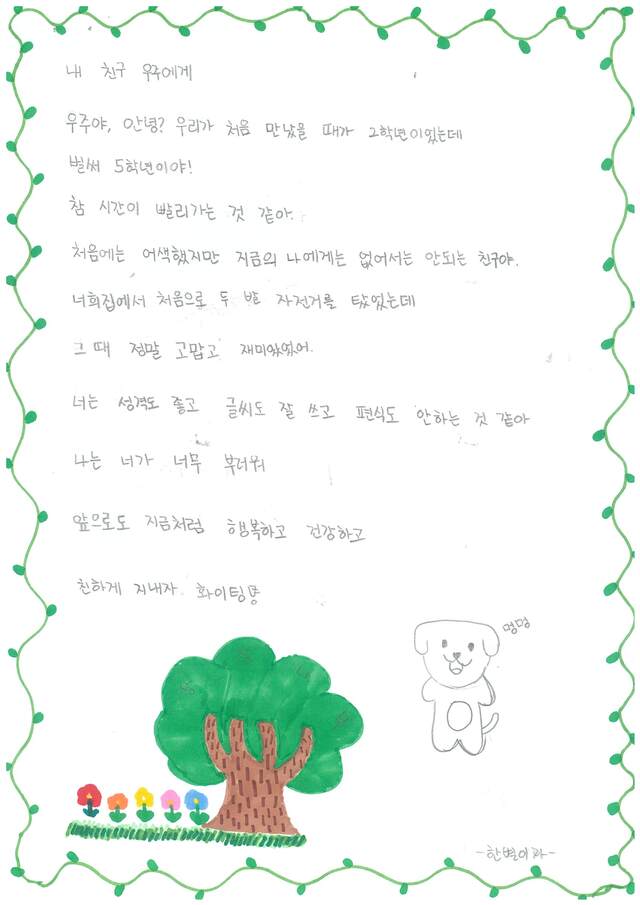 내 친구 우주에게
우주야, 안녕? 우리가 처음 만났을 때가 2학년이었는데
벌써 5학년이야!
참 시간이 빨리가는 것 같아.
처음에는 어색했지만 지금의 나에게는 없어서는 안되는 친구야.
너희집에서 처음으로 두 발 자전거를 탔었는데
그 때 정말 고맙고 재미있었어.
너는 성격도 좋고 글씨도 잘 쓰고 편식도 안하는 것 같아
나는 너가 너무 부러워
앞으로도 지금처럼 행복하고 건강하고
친하게 지내자 화이팅!
멍멍
-한별이가-